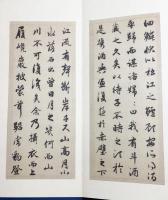 細鱗狀似松江之鱸顧安所得酒
乎歸而謀諸婦婦曰我有斗酒
藏之久矣以待子不時之須於
是攜酒與魚復遊於赤壁之下
江流有聲斷岸千尺山高月小
水落石出曾日月之幾何而江
山不可復識矣予乃攝衣而上
履巉巖披蒙茸踞虎豹登